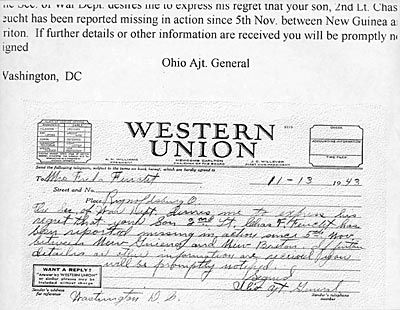 The Sec. of War Dept. desires me to express his regret that your son, 2nd Lt. Chas
eucht has been reported missing in action since 5th Nov. between New Guinea a
riton. If further details or other information are received you will be promptly n
igned
Ohio Ajt. General
Vashington, DC
WESTERN
UNION
A. N. WILLIAMS
PRESIDENT
NEWCOMB CARLTON
CHAIRMAN OF THE BOARD
J. C. WILLEVER
FIRST VICE-PRESIDENT
CHECK
ACCOUNTING INFORMATION
TIME FILED
Send the following telegram, subject to the terms on back hereof, which are hereby agreed to
To Mrs Freda Feucht 11-13 1943
Street and No.
Place Reynoldsburg O.
The Sec of War Dept desires me to express his
regret that your Son 2nd Lt. Chas F. Feucht has
been reported missing in action since 5th Nov.
between New Guinea and New Briton. If further
details or other information are received you
will be promptly notified.
Signed
Ajt General
WANT A REPLY?
"Answer by WESTERN UNION"
or similar phrases may be
included without charge.
Sender's address
for reference
Washington D.
Sender's telephone
number